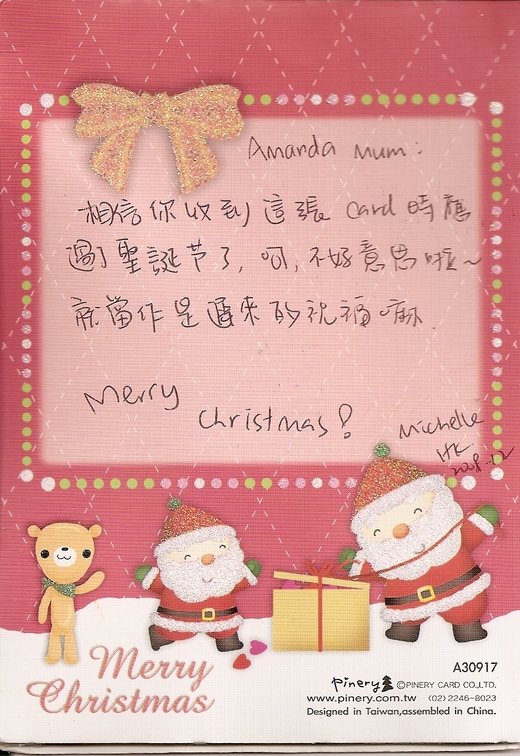 Amanda mum:
相信你收到這張 card 時應
過聖誕节了, 呵, 不好意思啦~
就當作是遲來的祝福嘛.
Merry
Christmas!
Michelle
HK
2008.12
Merry
Christmas
A30917
Pinery ©PINERY CARD CO.,LTD.
www.pinery.com.tw (02)2246-8023
Designed in Taiwan,assembled in China.